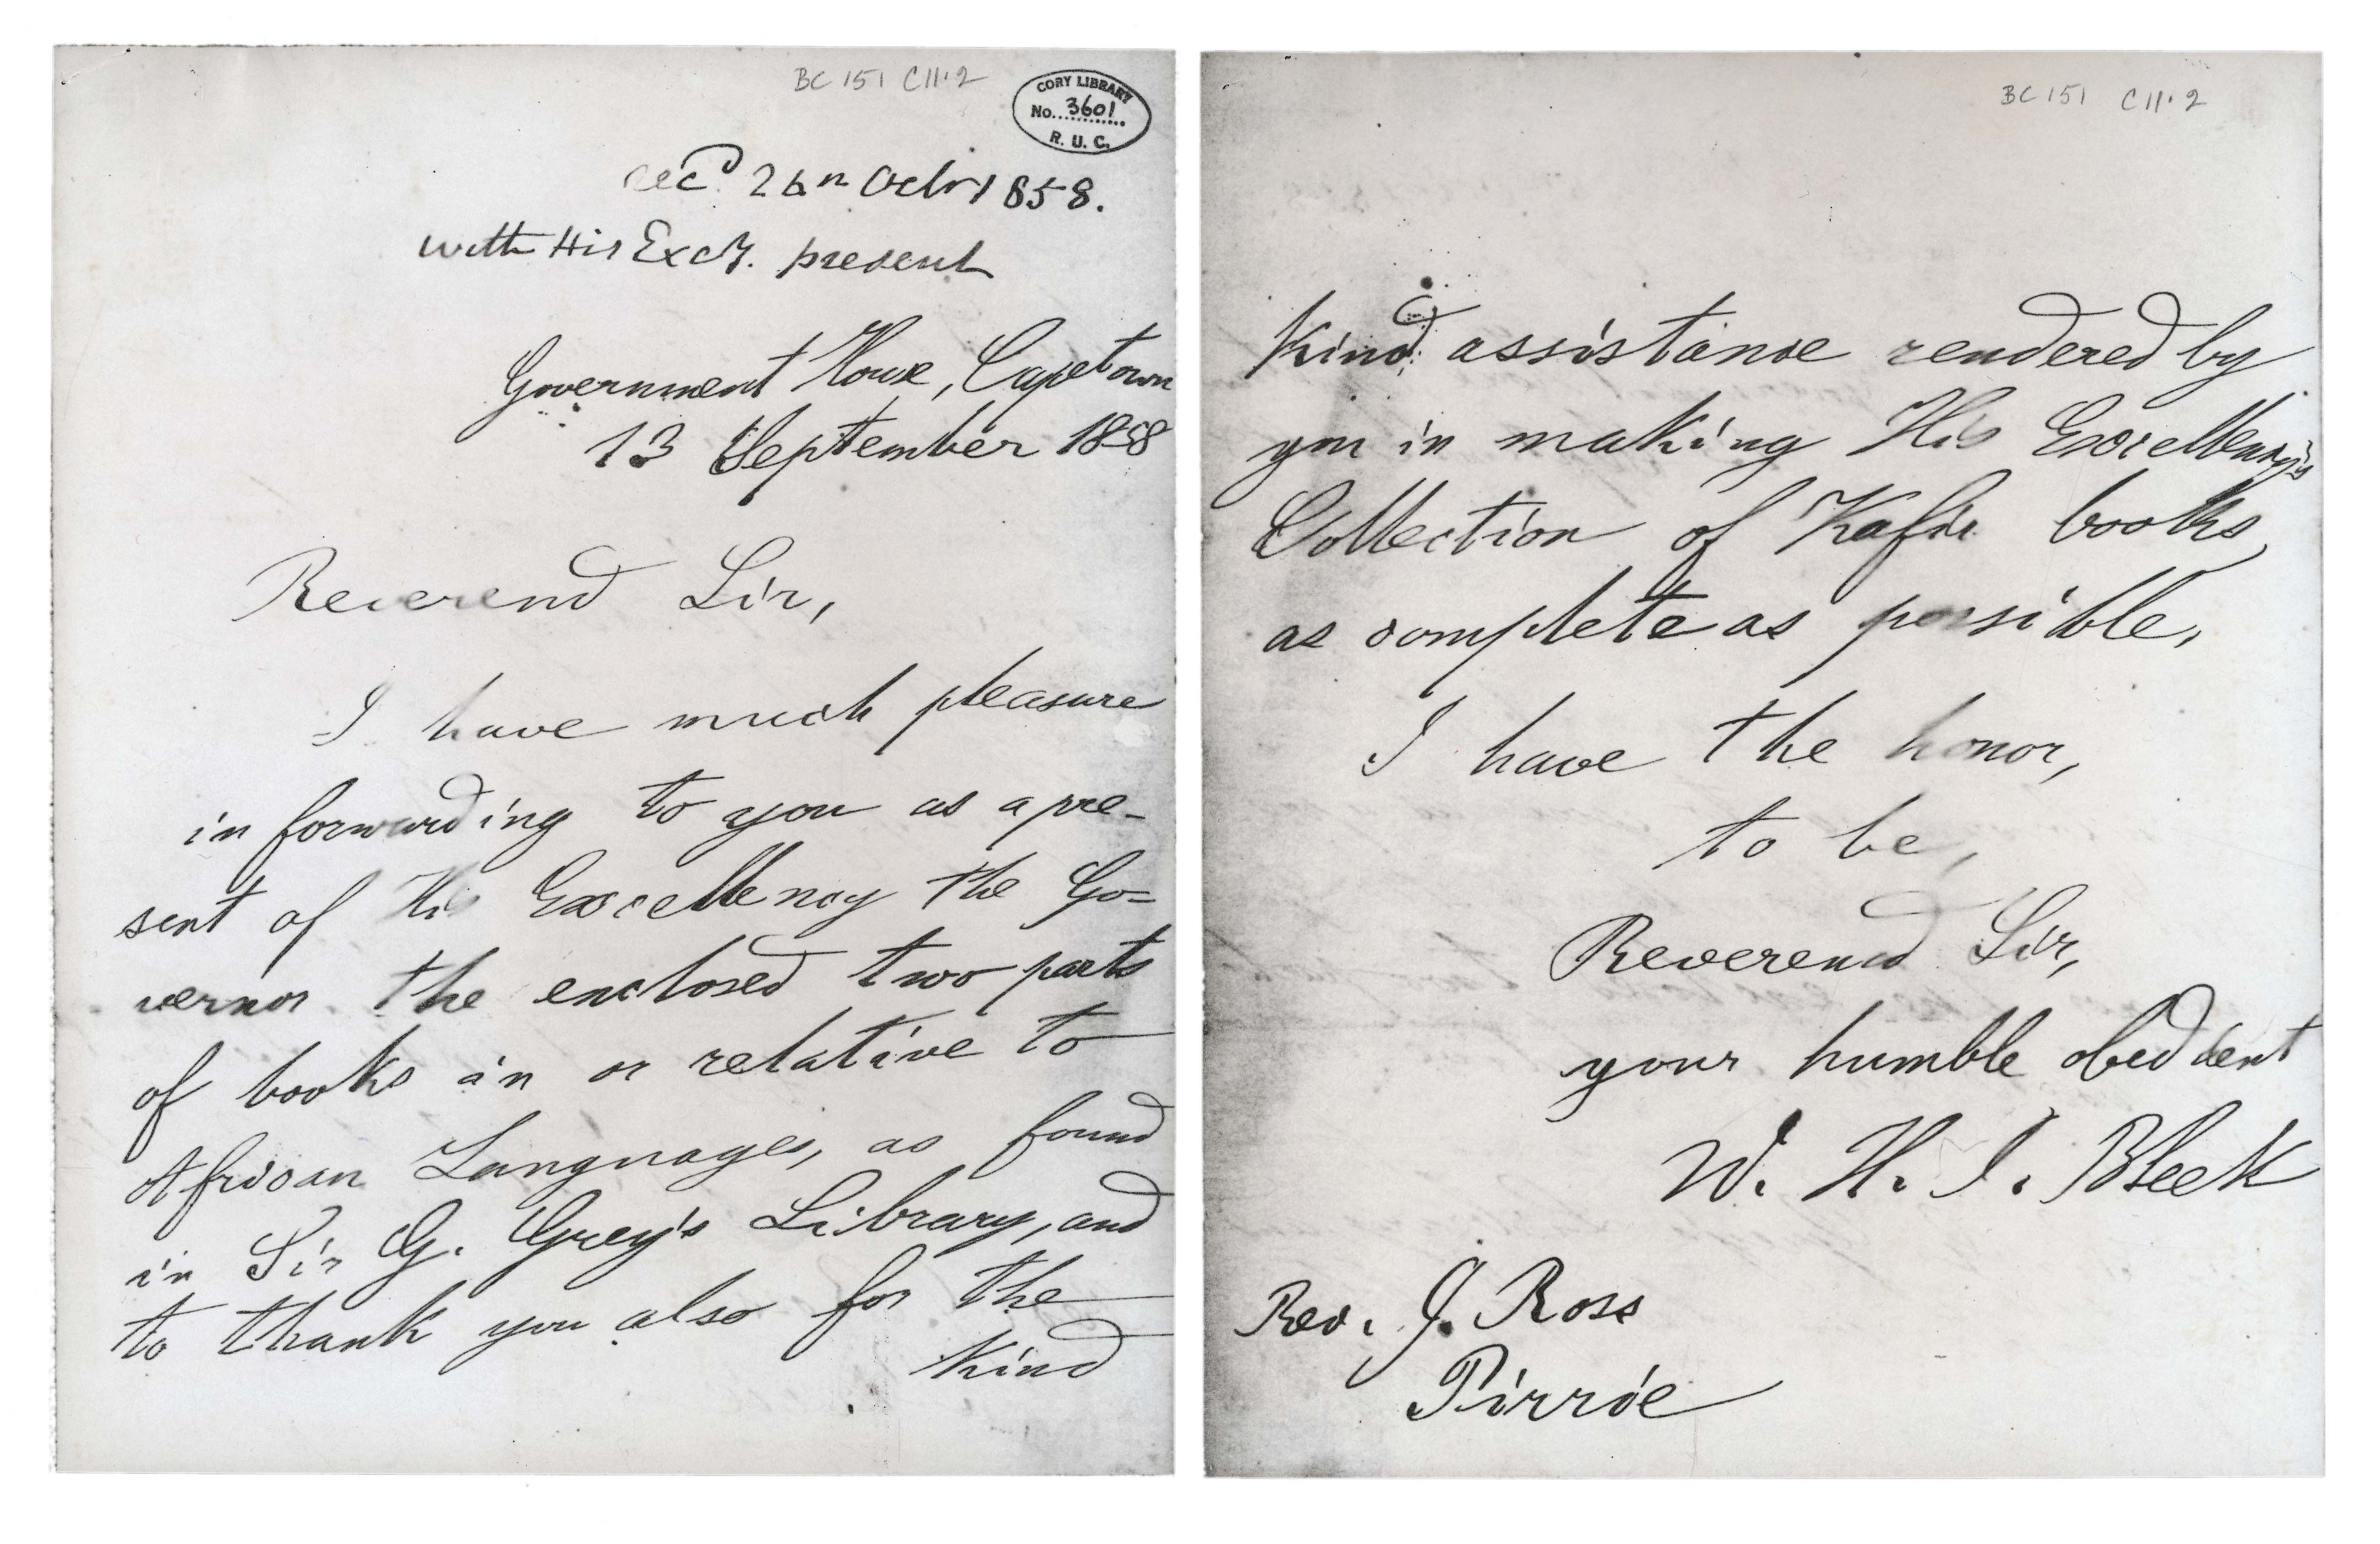 BC 151 C11.2
CORY LIBRARY
No. 3601
R. U. C.
recd. 26th Octbr 1858.
with His Excy. present
Government House, Capetown
13 September 1858
Reverend Sir,
I have much pleasure
in forwarding to you as a pre-
sent of His Excellency the Go=
vernor the enclosed two parts
of books in or relative to
African Languages, as found
in Sir G. Grey's Library, and
to thank you also for the
kind
BC 151 C11.2
Kind assistance rendered by
you in making His Excellency's
Collection of Kafir books
as complete as possible.
I have the honor,
to be,
Reverend Sir,
your humble obedient
W. H. I. Bleek
Rev. J. Ross
Pirrie